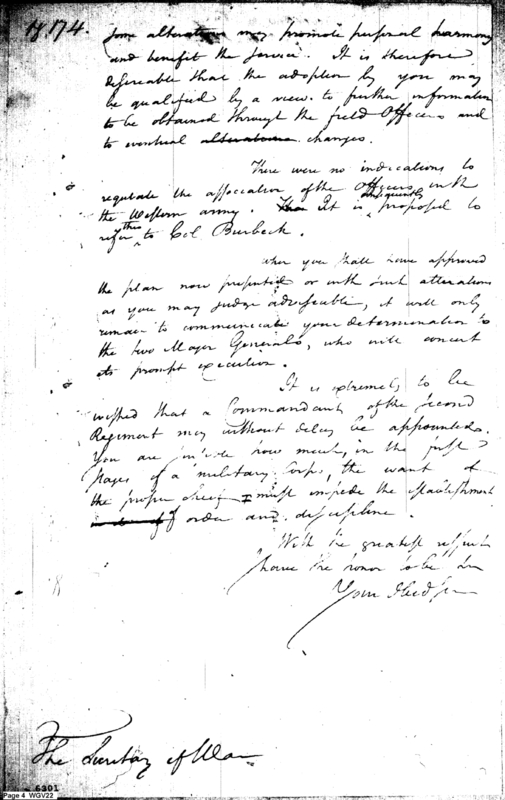 17.174.
some alterations may promote personal harmony
and benefit the service. It is therefore
desireable that the adoption by you may
be qualified by a view to further information
to be obtained through the field Officers and
to eventual alterations changes.
There were no indications to
regulate the association of the officers with
the Western army. It is consequently proposed to
refer this to Col Burbeck.
when you shall have approved
the plan now presented or with such alterations
as you may judge adviseable, it will only
remain to communicate your determination to
the two Major Generals, who will concert
its prompt execution.
It is extremely to be
wished that a Commandant of the second
Regiment may without delay be appointed.
You are how much, in the first
stages of a military Corps, the want of
the proper chief must impede the establishment
of order and discipline.
With the greatest respect
I have the honor to be Sir
Your Obed ser
The Secretary of War
6301
Page 4 WGV22